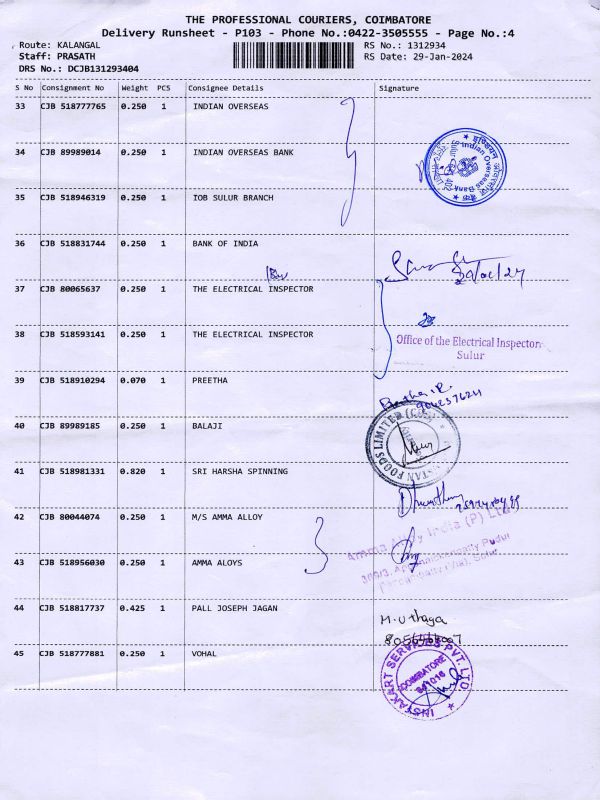 THE PROFESSIONAL COURIERS, COIMBATORE
Delivery Runsheet - P103 - Phone No.:0422-3505555 - Page No.:4
Route: KALANGAL RS No.: 1312934
Staff: PRASATH RS Date: 29-Jan-2024
DRS No.: DCJB131293404
S No Consignment No Weight PCS Consignee Details Signature
33 CJB 518777765 0.250 1 INDIAN OVERSEAS
34 CJB 89989014 0.250 1 INDIAN OVERSEAS BANK
Indian Overseas Bank
35 CJB 518946319 0.250 1 IOB SULUR BRANCH
36 CJB 518831744 0.250 1 BANK OF INDIA
37 CJB 80065637 0.250 1 THE ELECTRICAL INSPECTOR
38 CJB 518593141 0.250 1 THE ELECTRICAL INSPECTOR
Office of the Electrical Inspector
Sulur
39 CJB 518910294 0.070 1 PREETHA
40 CJB 89989185 0.250 1 BALAJI
FOODS LIMITED
41 CJB 518981331 0.820 1 SRI HARSHA SPINNING
42 CJB 80044074 0.250 1 M/S AMMA ALLOY
Amma Alloy India (P) Ltd
43 CJB 518956030 0.250 1 AMMA ALOYS
44 CJB 518817737 0.425 1 PALL JOSEPH JAGAN
M. Uthaya
45 CJB 518777881 0.250 1 VOHAL
INSTAKART SERVICES PVT. LTD.
COIMBATORE
641016